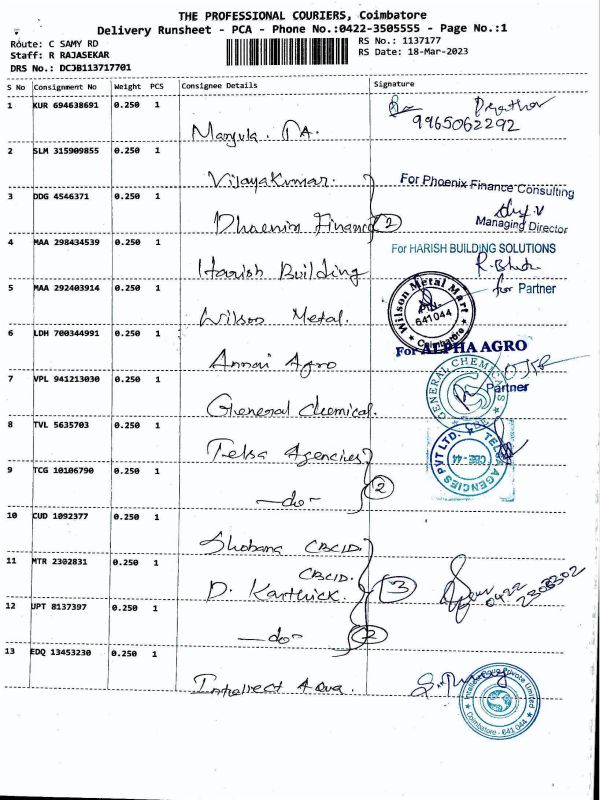 THE PROFESSIONAL COURIERS, Coimbatore
Delivery Runsheet - PCA - Phone No.:0422-3505555 - Page No.:1
Route: C SAMY RD
RS No.: 1137177
Staff: R RAJASEKAR
RS Date: 18-Mar-2023
DRS No.: DCJB113717701
S No Consignment No Weight PCS Consignee Details Signature
1 KUR 694638691 0.250 1
9965062292
2 SLM 315909855 0.250 1
Vijayakumar.
For Phoenix Finance Consulting
3 DDG 4546371 0.250 1
Phoenix Finance 2
Managing Director
4 MAA 298434539 0.250 1
For HARISH BUILDING SOLUTIONS
Harish Building
5 MAA 292403914 0.250 1
for Partner
Wilson Metal.
Wilson Metal Mart
641 044
★ Coimbatore ★
6 LDH 700344991 0.250 1
For ALPHA AGRO
Annai Agro
7 VPL 941213030 0.250 1
GENERAL CHEMICALS
Partner
General Chemical.
8 TVL 5635703 0.250 1
Telsa Agencies
AGENCIES PVT LTD.
CBE - 44
9 TCG 10106790 0.250 1
-do- 2
10 CUD 1092377 0.250 1
Shobana CBCID.
11 MTR 2302831 0.250 1
CBCID.
D. Karthick. 3
0422
12 UPT 8137397 0.250 1
-do- 2
13 EDQ 13453230 0.250 1
Intellect Aqua.
Private Limited
★ Coimbatore - 641 044 ★